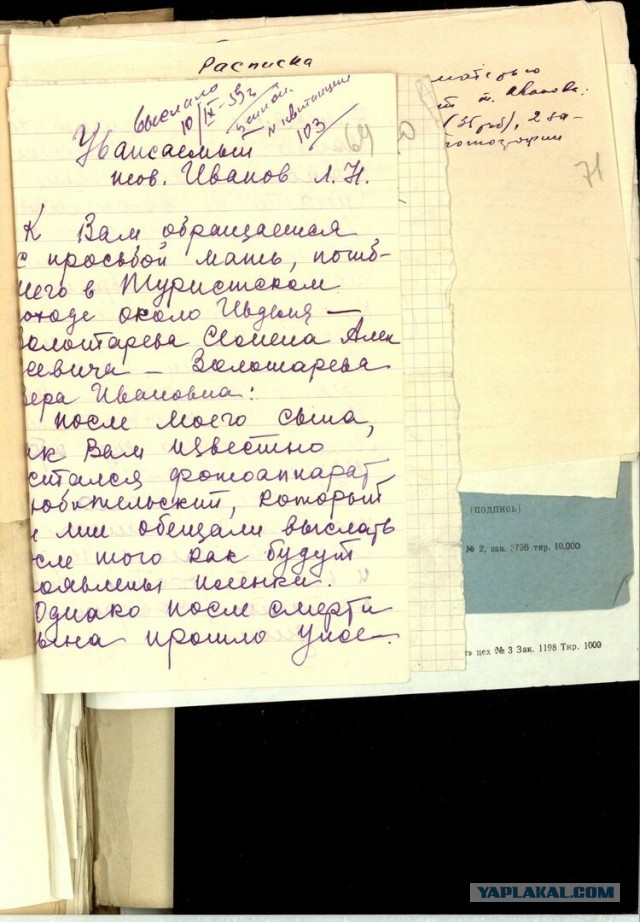 Расписка
матерью
т. Иванова:
(35 руб), 2 за-
71
выслано
10/IX-59г
ценной
N квитанции
103
69
Уважаемый
тов. Иванов Л. Н.
К Вам обращается
с просьбой мать, погиб-
шего в Туристском
походе около Ивделя —
Золотарева Семена Алек
сеевича — Золотарева
Вера Ивановна:
После моего сына,
ак Вам известно
стался фотоаппарат
юбительский, который
мне обещали выслать
сле того как будут
оявлены пленки.
Однако после смерти
ына прошло уже
(подпись)
№ 2, зак. 2796 тир. 10.000
цех № 3 Зак. 1198 Тир. 1000
YAPLAKAL.COM